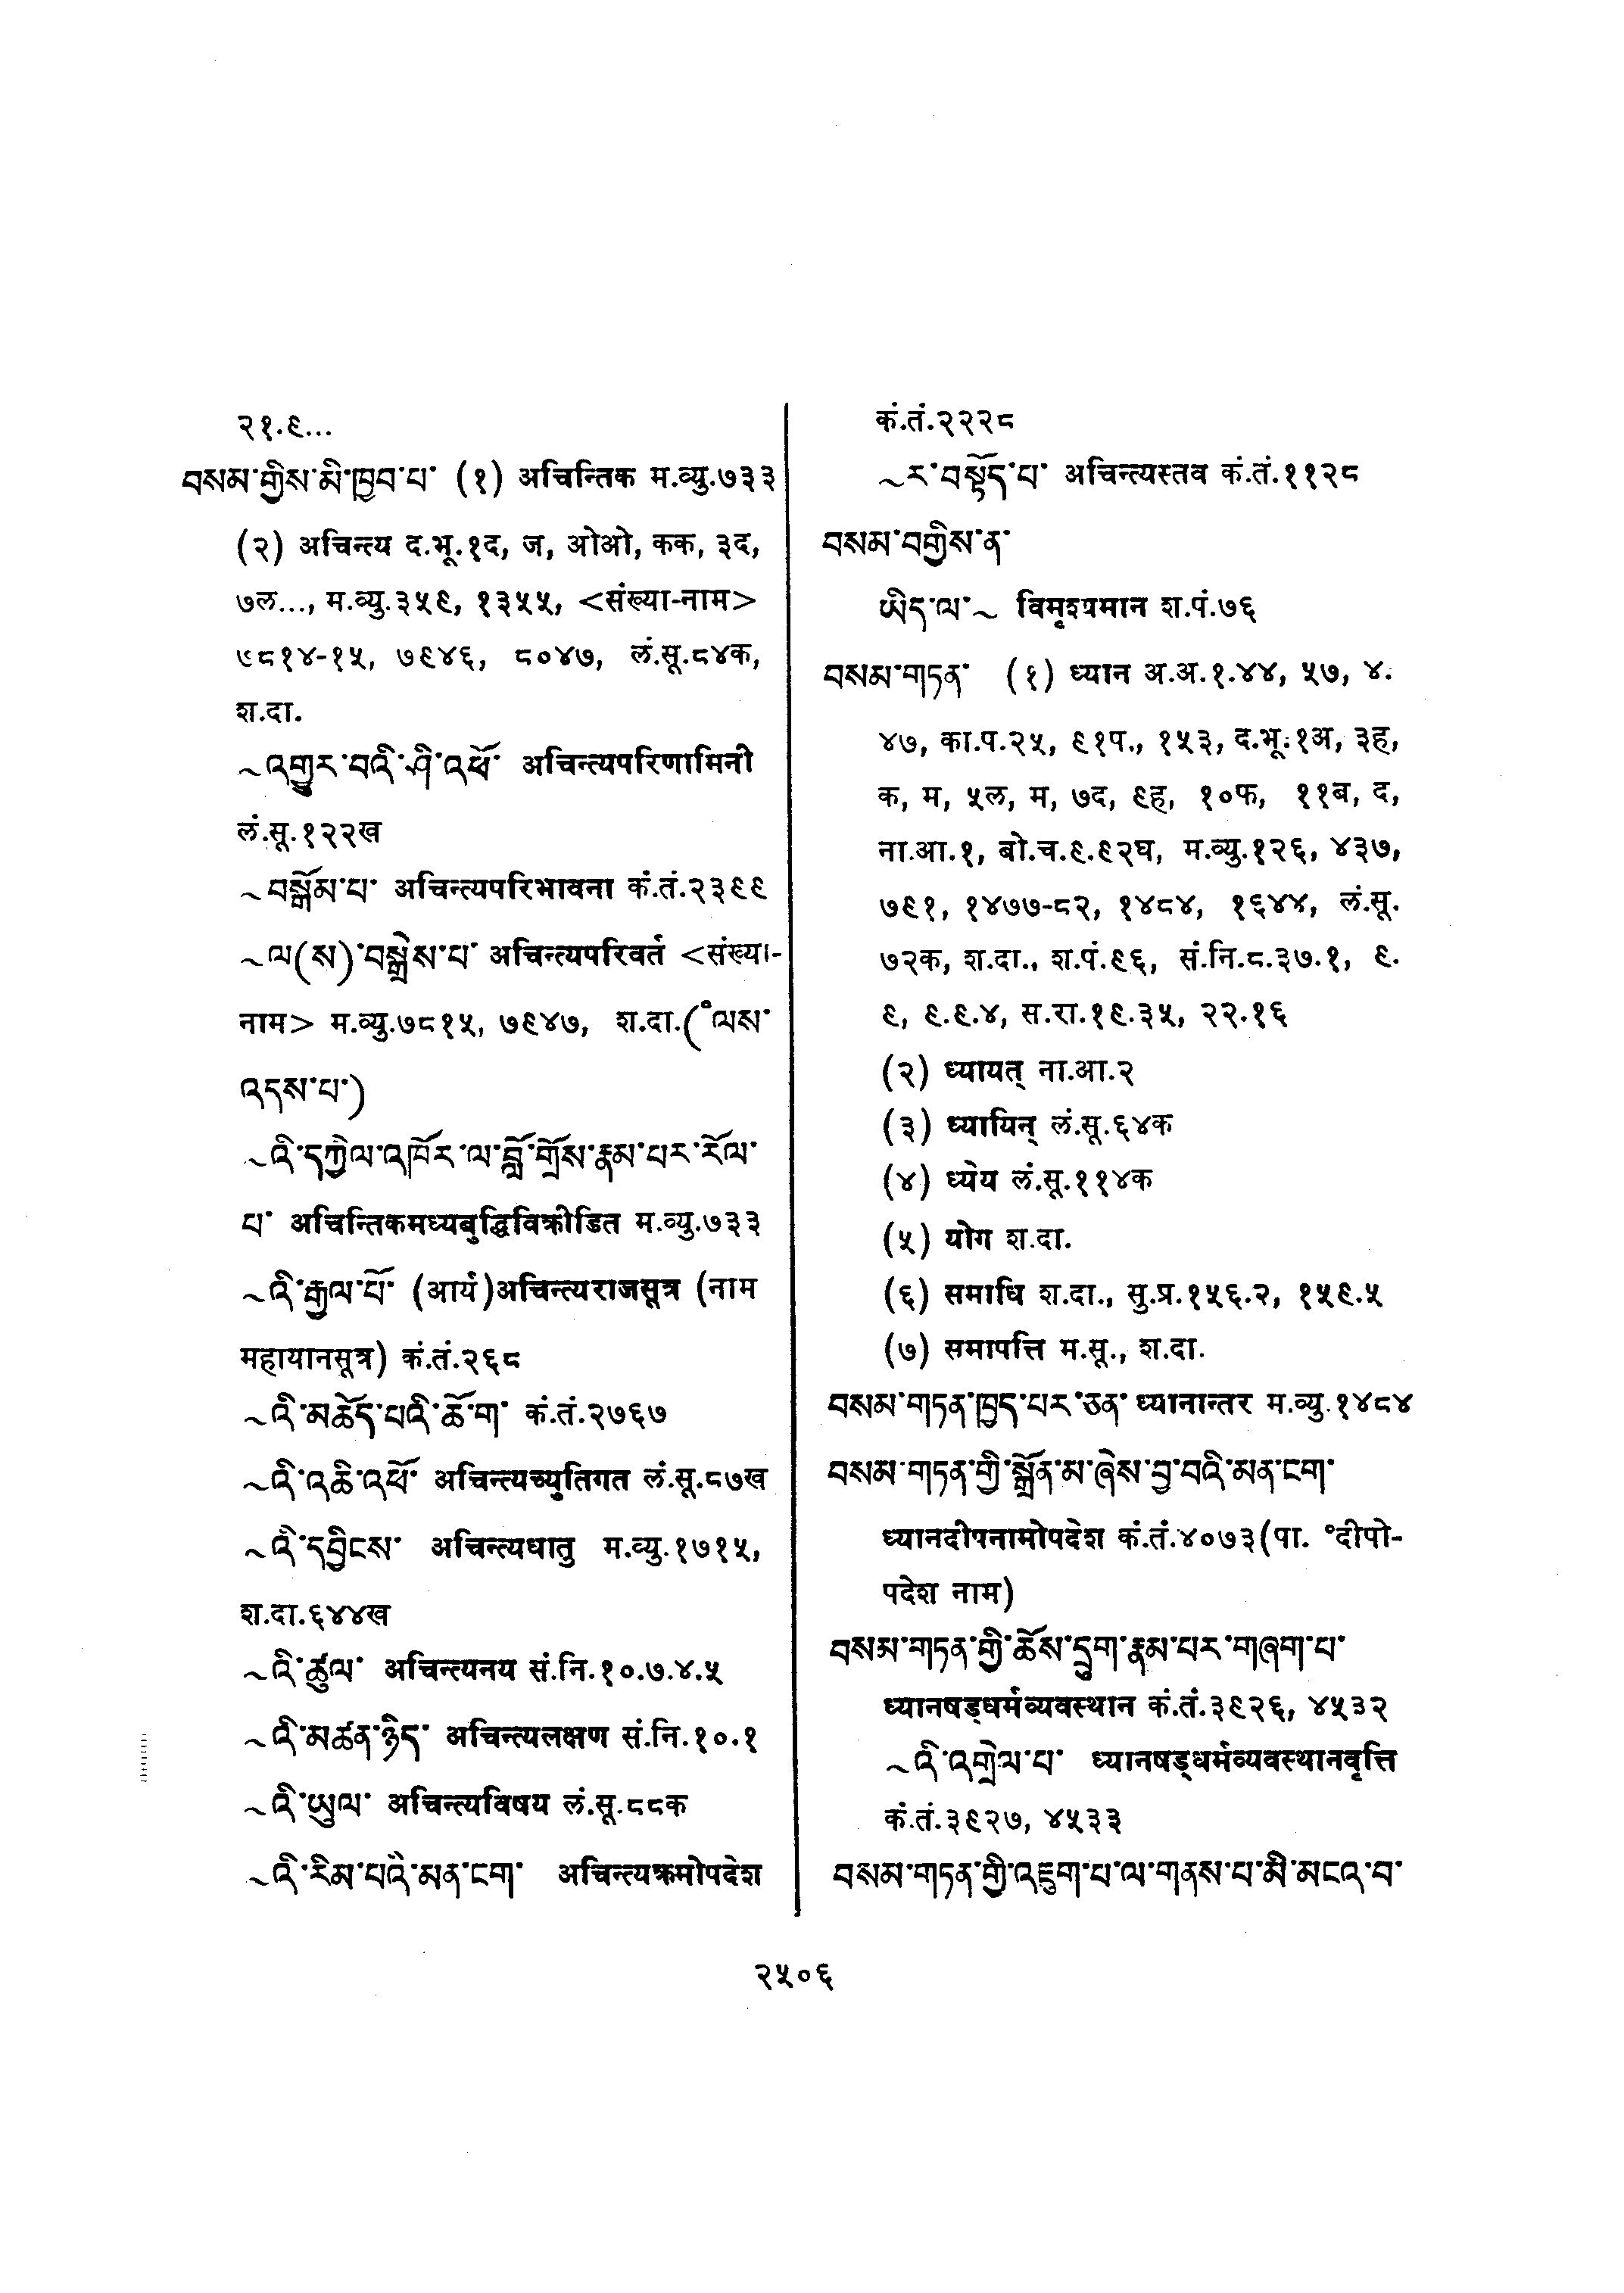 २१.९...
བསམ་གྱིས་མི་ཁྱབ་པ་ (१) अचिन्तिक म.व्यु.७३३
(२) अचिन्त्य द.भू.१द, ज, ओओ, कक, ३द,
७ल..., म.व्यु.३५९, १३५५, <संख्या-नाम>
७८१४-१५, ७९४६, ८०४७, लं.सू.८४क,
श.दा.
~འགྱུར་བའི་ཤི་འཕོ་ अचिन्त्यपरिणामिनी
लं.सू.१२२ख
~བསྒོམ་པ་ अचिन्त्यपरिभावना कं.तं.२३९९
~ལ(ས)་བསྒྲེས་པ་ अचिन्त्यपरिवर्त <संख्या-
नाम> म.व्यु.७८१५, ७९४७, श.दा.(°ལས་
འདས་པ་)
~འི་དཀྱིལ་འཁོར་ལ་བློ་གྲོས་རྣམ་པར་རོལ་
པ་ अचिन्तिकमध्यबुद्धिविक्रीडित म.व्यु.७३३
~འི་རྒྱལ་པོ་ (आर्य)अचिन्त्यराजसूत्र (नाम
महायानसूत्र) कं.तं.२६८
~འི་མཆོད་པའི་ཆོ་ག་ कं.तं.२७६७
~འི་འཆི་འཕོ་ अचिन्त्यच्युतिगत लं.सू.८७ख
~འི་དབྱིངས་ अचिन्त्यधातु म.व्यु.१७१५,
श.दा.६४४ख
~འི་ཚུལ་ अचिन्त्यनय सं.नि.१०.७.४.५
~འི་མཚན་ཉིད་ अचिन्त्यलक्षण सं.नि.१०.१
~འི་ཡུལ་ अचिन्त्यविषय लं.सू.८८क
~འི་རིམ་པའི་མན་ངག་ अचिन्त्यक्रमोपदेश
कं.तं.२२२८
~ར་བསྟོད་པ་ अचिन्त्यस्तव कं.तं.११२८
བསམ་བགྱིས་ན་
ཡིད་ལ་~ विमृश्यमान श.पं.७६
བསམ་གཏན་ (१) ध्यान अ.अ.१.४४, ५७, ४.
४७, का.प.२५, ९१प., १५३, द.भू.१अ, ३ह,
क, म, ५ल, म, ७द, ९ह, १०फ, ११ब, द,
ना.आ.१, बो.च.९.९२घ, म.व्यु.१२६, ४३७,
७९१, १४७७-८२, १४८४, १६४४, लं.सू.
७२क, श.दा., श.पं.९६, सं.नि.८.३७.१, ९.
९, ९.९.४, स.रा.१९.३५, २२.१६
(२) ध्यायत् ना.आ.२
(३) ध्यायिन् लं.सू.६४क
(४) ध्येय लं.सू.११४क
(५) योग श.दा.
(६) समाधि श.दा., सु.प्र.१५६.२, १५९.५
(७) समापत्ति म.सू., श.दा.
བསམ་གཏན་ཁྱད་པར་ཅན་ ध्यानान्तर म.व्यु.१४८४
བསམ་གཏན་གྱི་སྒྲོན་མ་ཞེས་བྱ་བའི་མན་ངག་
ध्यानदीपनामोपदेश कं.तं.४०७३(पा. °दीपो-
पदेश नाम)
བསམ་གཏན་གྱི་ཆོས་དྲུག་རྣམ་པར་གཞག་པ་
ध्यानषड्धर्मव्यवस्थान कं.तं.३९२६, ४५३२
~འི་འགྲེལ་པ་ ध्यानषड्धर्मव्यवस्थानवृत्ति
कं.तं.३९२७, ४५३३
བསམ་གཏན་གྱི་འཇུག་པ་ལ་གནས་པ་མི་མངའ་བ་
२५०६